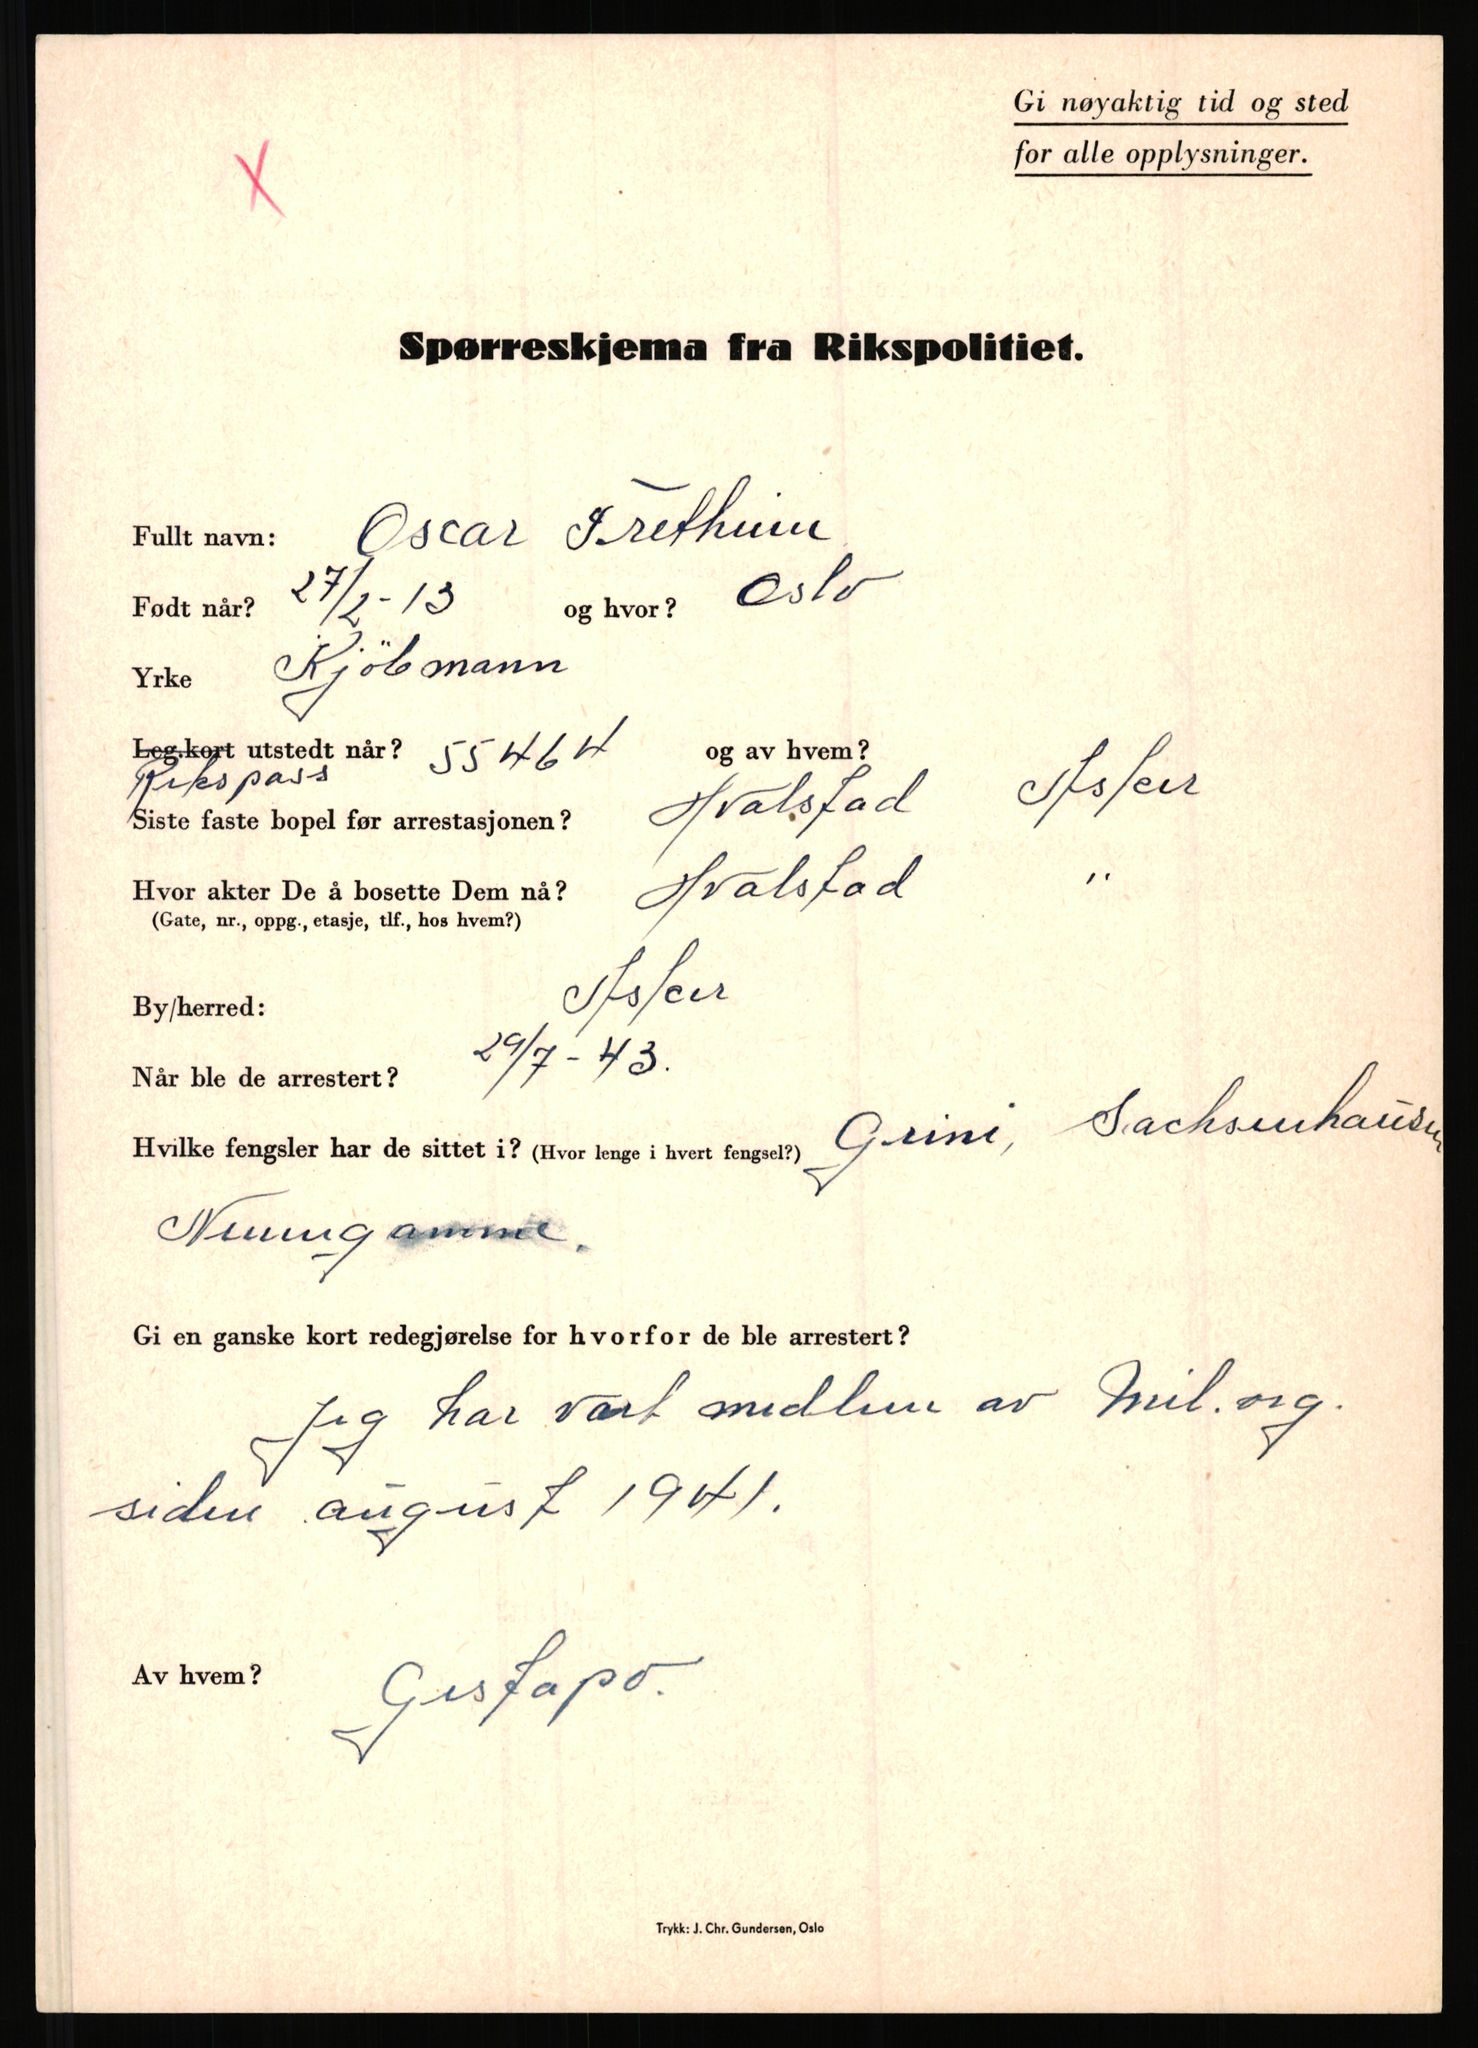 Gi nøyaktig tid og sted
for alle opplysninger.
X
Spørreskjema fra Rikspolitiet.
Fullt navn: Oscar Frethim
Født når? 27/2-13 og hvor? Oslo
Yrke Kjöbmann
Leg.kort utstedt når? 55464 og av hvem?
Rikspass
Siste faste bopel før arrestasjonen? Hvalstad Asker
Hvor akter De å bosette Dem nå? Hvalstad "
(Gate, nr., oppg., etasje, tlf., hos hvem?)
By/herred: Asker
Når ble de arrestert? 29/7-43.
Hvilke fengsler har de sittet i? (Hvor lenge i hvert fengsel?) Grini, Sachsenhausen
Neuengamme.
Gi en ganske kort redegjørelse for hvorfor de ble arrestert?
Jeg har vært medlem av Mil.org.
siden august 1941.
Av hvem? Gestapo.
Trykk: J. Chr. Gundersen, Oslo